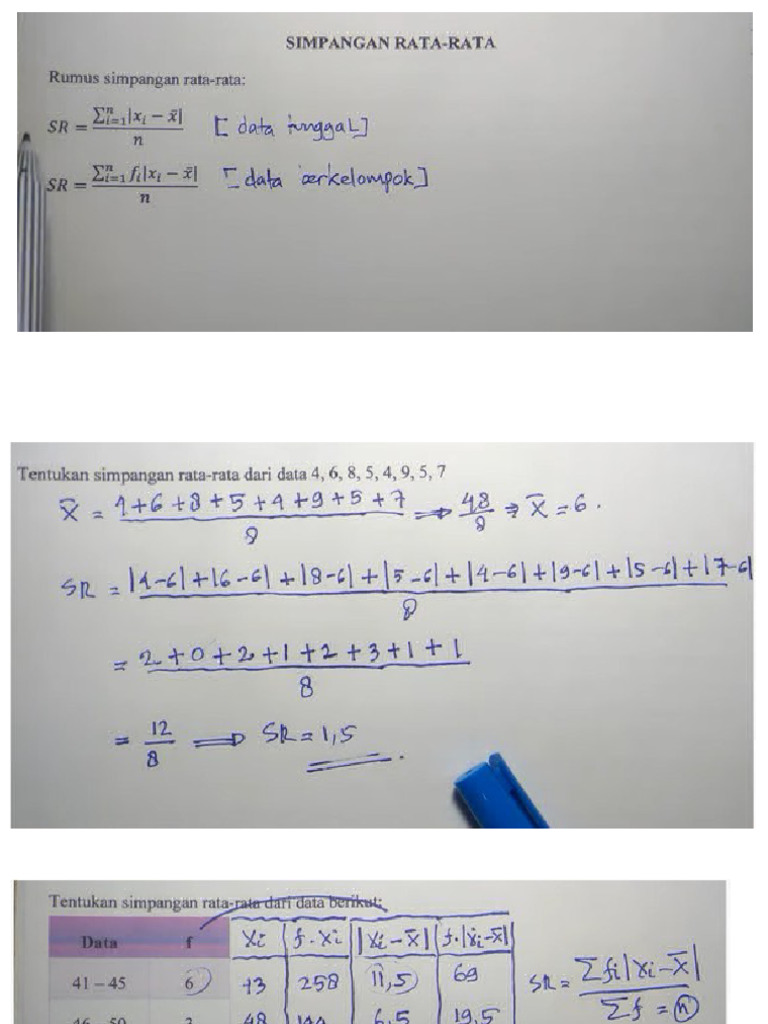 SIMPANGAN RATA-RATA
Rumus simpangan rata-rata:
SR = \frac{\sum_{i=1}^{n} |x_i - x̄|}{n} [ data tunggal ]
SR = \frac{\sum_{i=1}^{n} f_i |x_i - x̄|}{n} [ data berkelompok ]
Tentukan simpangan rata-rata dari data 4, 6, 8, 5, 4, 9, 5, 7
x̄ = \frac{4+6+8+5+4+9+5+7}{8} ⇒ \frac{48}{8} ⇒ x̄ = 6.
SR = \frac{|4-6|+|6-6|+|8-6|+|5-6|+|4-6|+|9-6|+|5-6|+|7-6|}{8}
= \frac{2+0+2+1+2+3+1+1}{8}
= \frac{12}{8} ⇒ SR = 1,5.
Tentukan simpangan rata-rata dari data berikut:
Data f xi f.xi |xi - x̄| f.|xi - x̄|
41 – 45 6 43 258 11,5 69 SR = \frac{\sum fi |xi - x̄|}{\sum f = n}
46 50 3 48 144 6,5 19,5